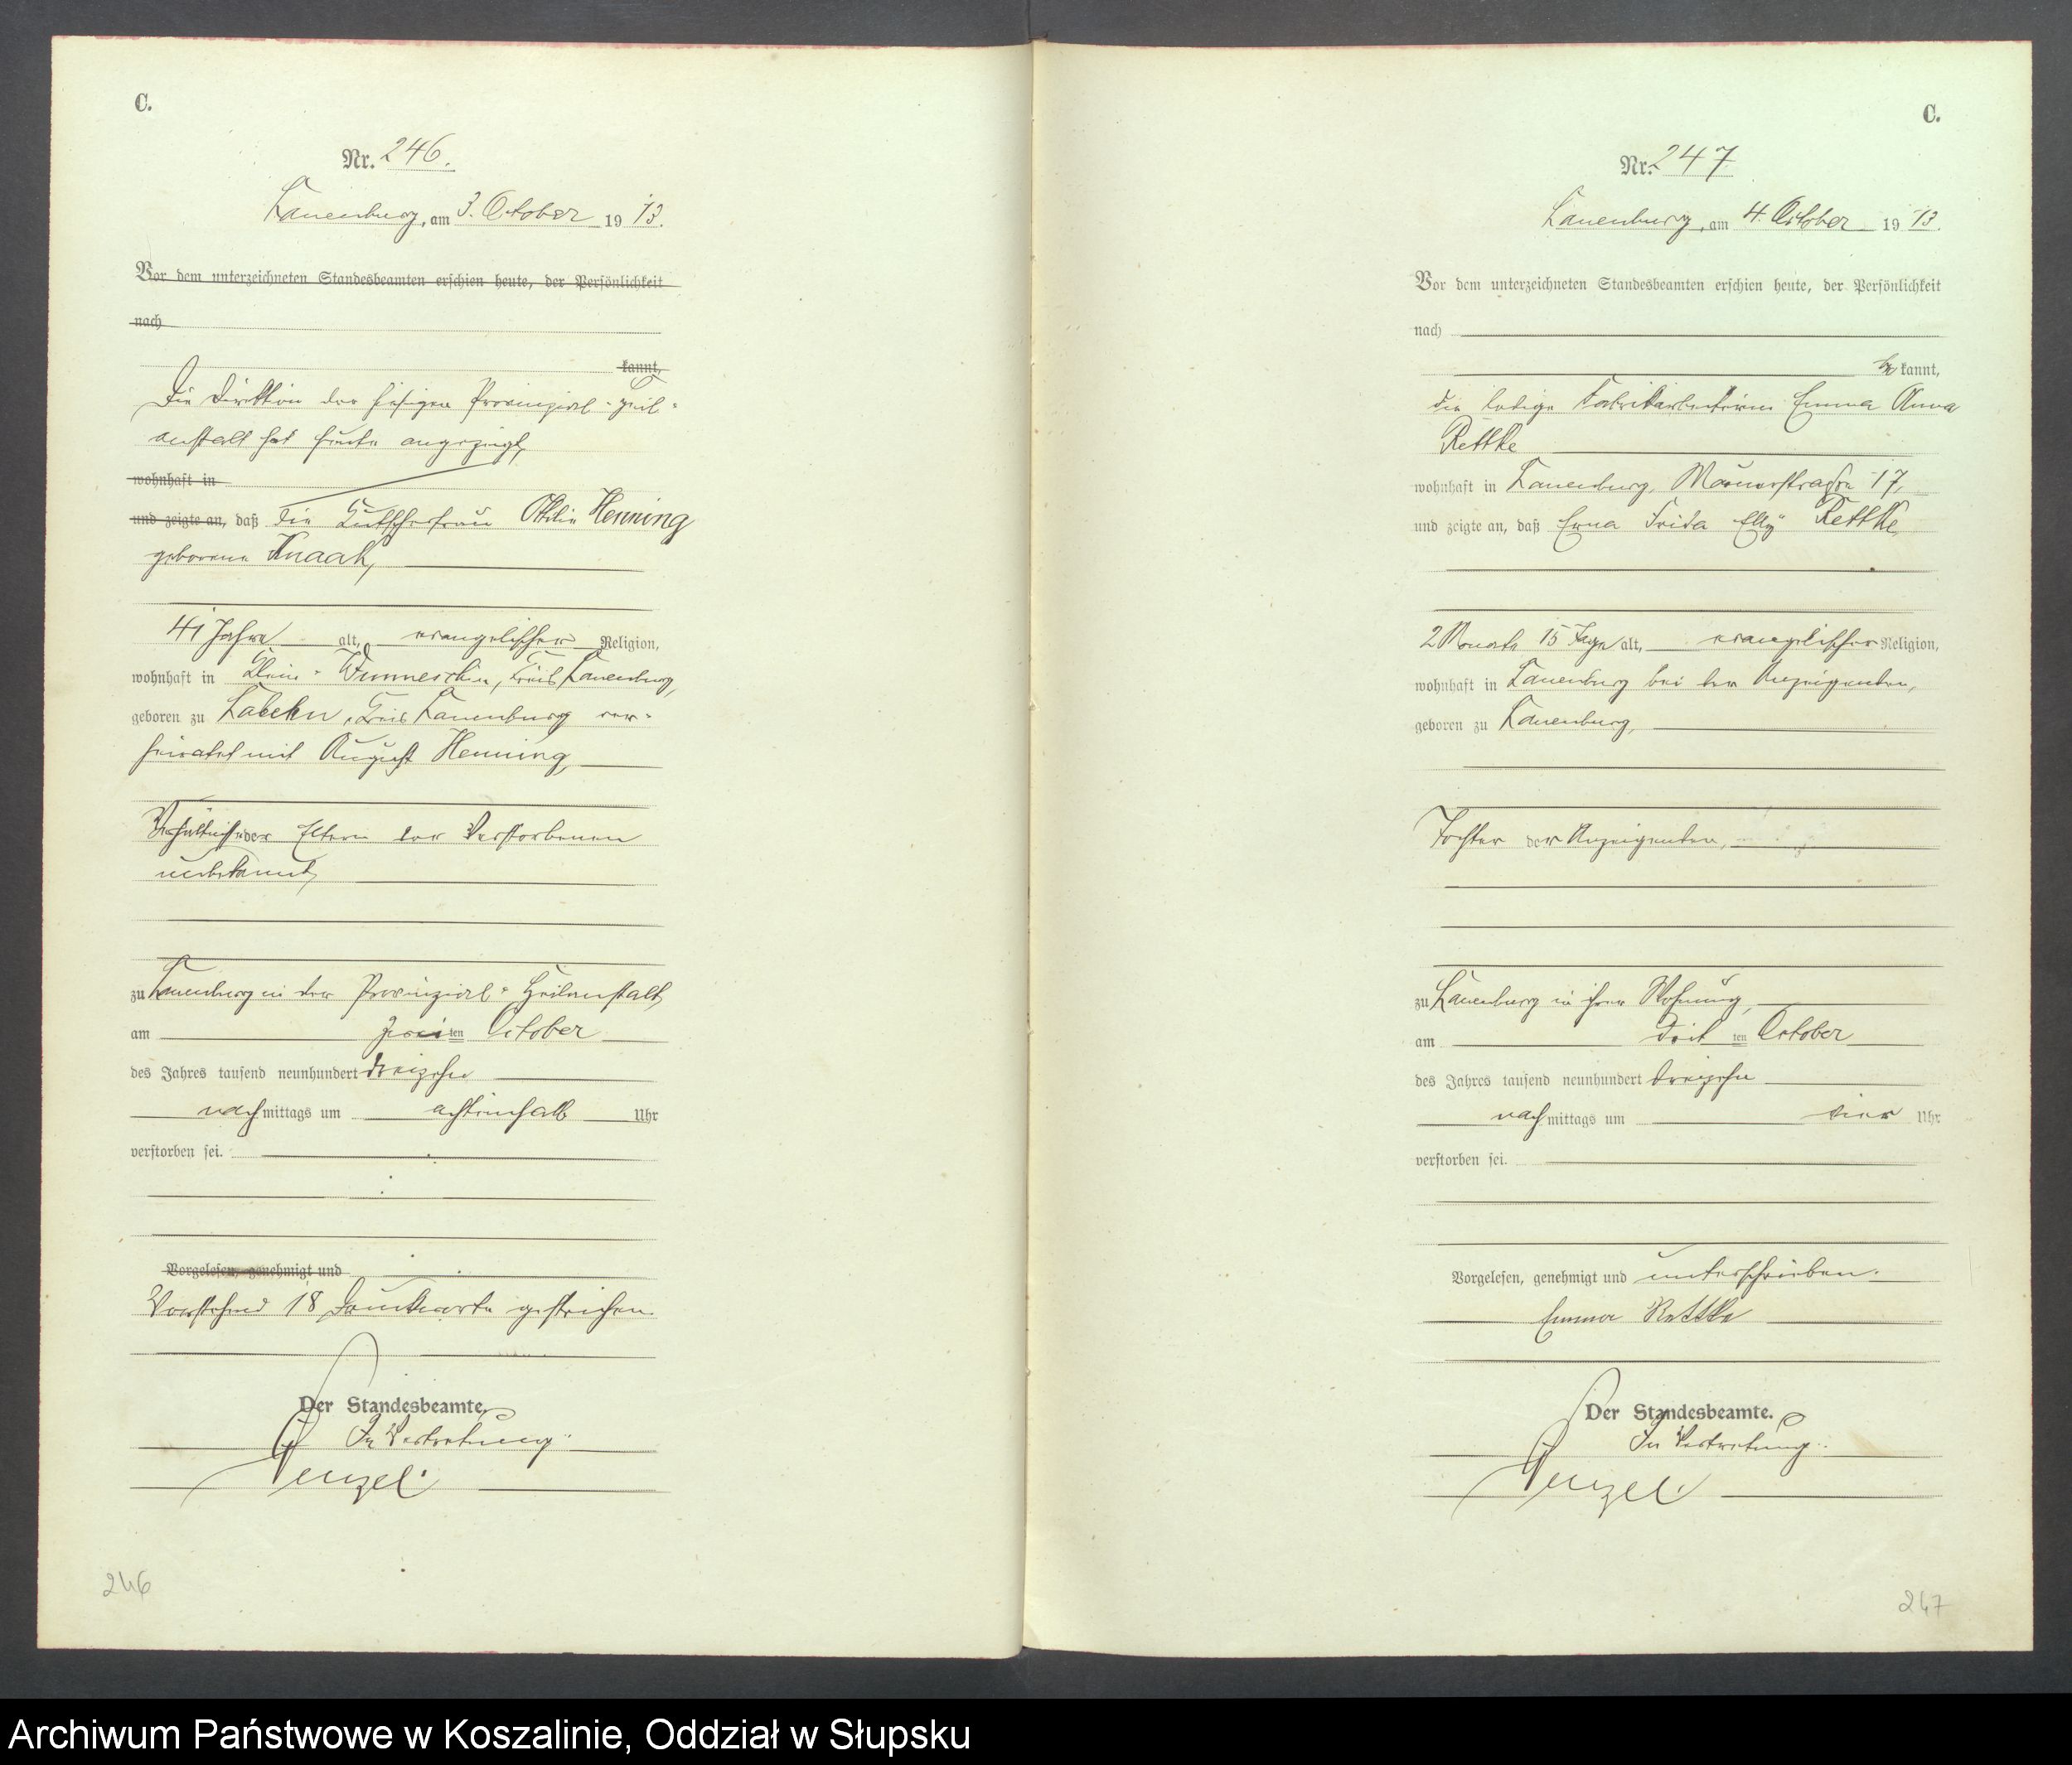 C.
Nr. 246.
Lauenburg, am 3. October 19 13.
Vor dem unterzeichneten Standesbeamten erschien heute, der Persönlichkeit
nach
kannt,
Die Direktion der hiesigen Provinzial-Heil-
anstalt hat heute angezeigt,
wohnhaft in
und zeigte an, daß die Kutscherfrau Ottilie Henning
geborene Knaak,
41 Jahre alt, evangelischer Religion,
wohnhaft in Klein-Wunneschin, Kreis Lauenburg,
geboren zu Labehn, Kreis Lauenburg ver-
heiratet mit August Henning,
Verhältnisse der Eltern der Verstorbenen
unbekannt,
zu Lauenburg in der Provinzial-Heilanstalt,
am zweiten October
des Jahres tausend neunhundert dreizehn
nachmittags um achteinhalb Uhr
verstorben sei.
Vorgelesen, genehmigt und
Vorstehend 18 Druckworte gestrichen.
Der Standesbeamte.
In Vertretung:
Penzel.
246
C.
Nr. 247
Lauenburg, am 4. October 19 13.
Vor dem unterzeichneten Standesbeamten erschien heute, der Persönlichkeit
nach
bekannt,
die ledige Fabrikarbeiterin Emma Anna
Rettke
wohnhaft in Lauenburg, Mauerstraße 17,
und zeigte an, daß Erna Frida Elly Rettke,
2 Monate 15 Tage alt, evangelischer Religion,
wohnhaft in Lauenburg bei der Anzeigenden,
geboren zu Lauenburg,
Tochter der Anzeigenden,
zu Lauenburg in ihrer Wohnung,
am dritten October
des Jahres tausend neunhundert dreizehn
nachmittags um vier Uhr
verstorben sei.
Vorgelesen, genehmigt und unterschrieben.
Emma Rettke
Der Standesbeamte.
In Vertretung:
Penzel.
247
Archiwum Państwowe w Koszalinie, Oddział w Słupsku